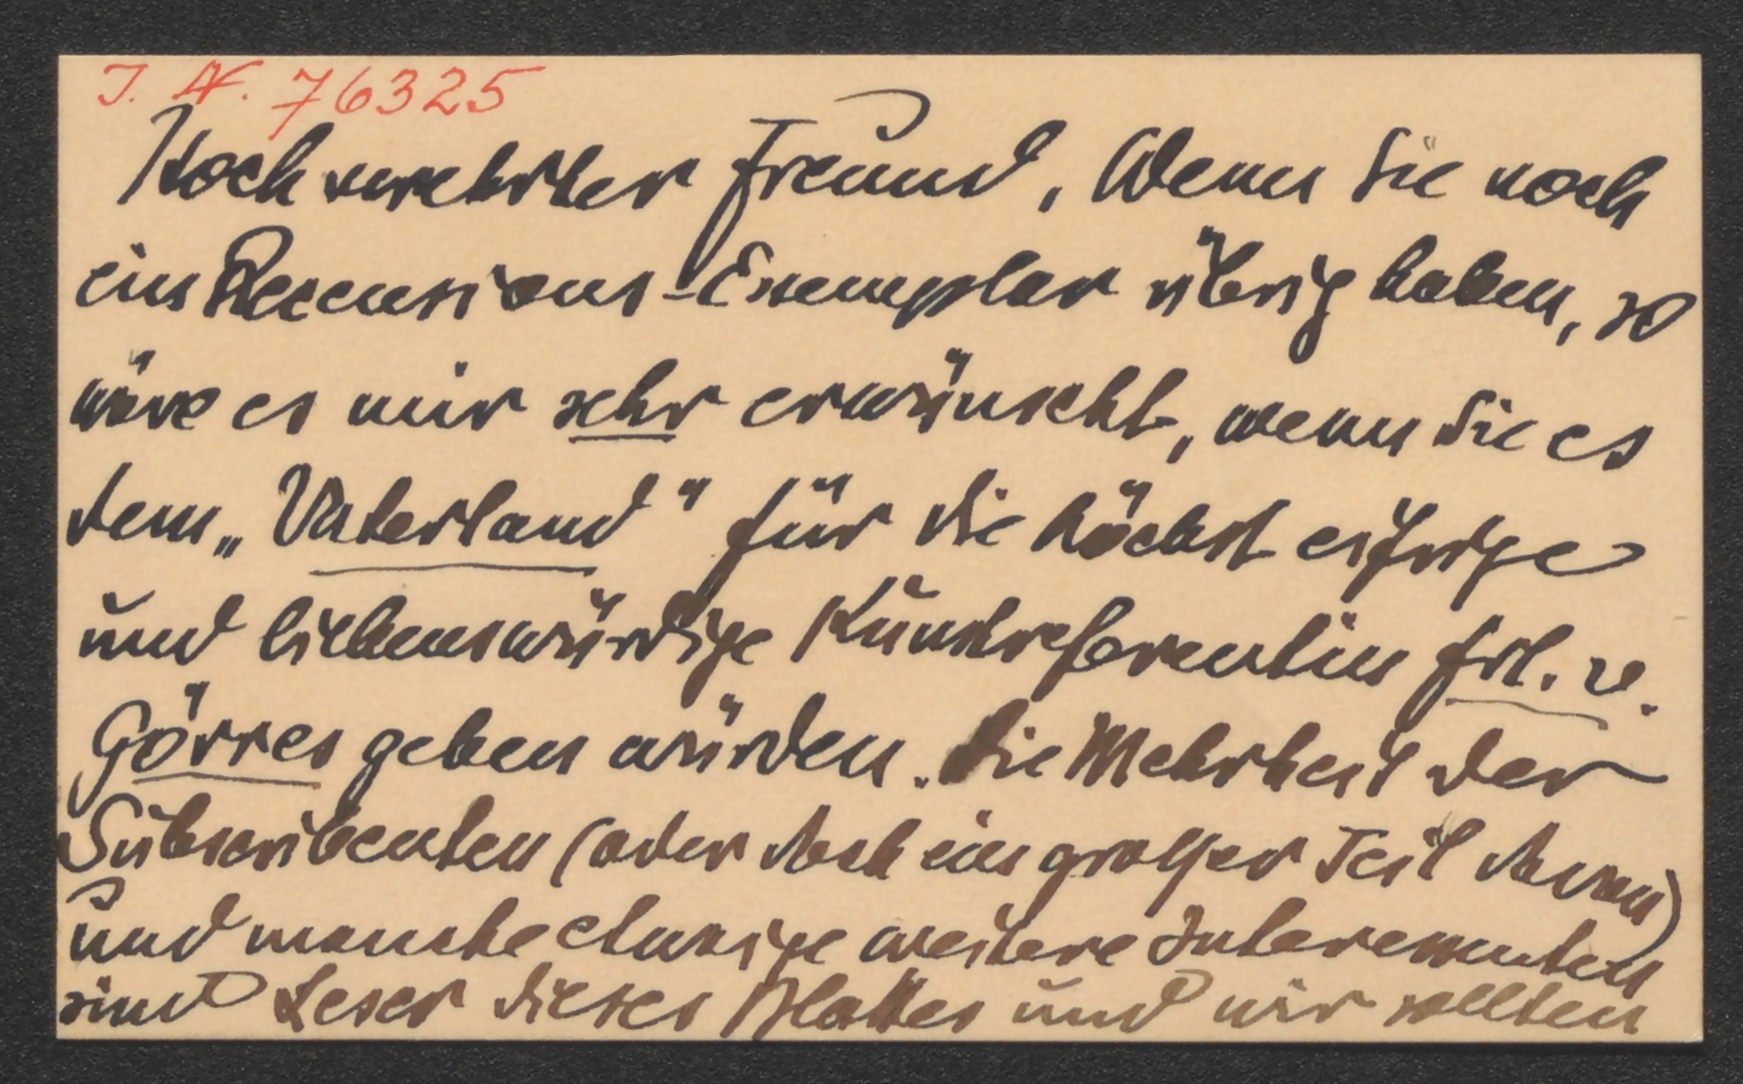 J. N. 76325
Hochverehrter Freund, Wenn Sie noch
ein Recensions-Exemplar übrig haben, so
wäre es mir sehr erwünscht, wenn Sie es
dem „Vaterland" für die höchst eifrige
und liebenswürdige Kunstreferentin Frl. v.
Görres geben würden. Die Mehrheit der
Subscribenten (oder doch ein großer Teil davon)
und manche etwaige weitere Interessenten
sind Leser dieses Blattes und wir sollten